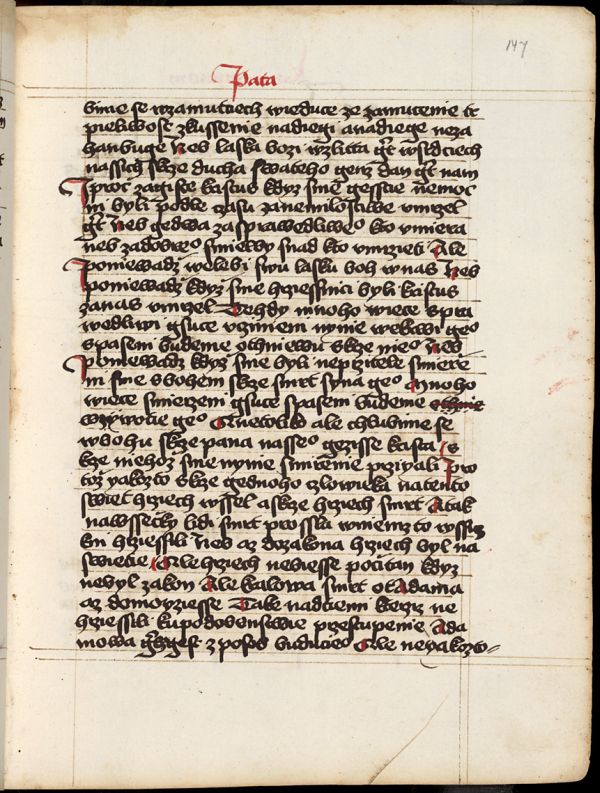 147
Pata
bime se wzamutciech wieduce ze zamucenie tr
pieliwost zkussenie nadiegi a nadiege neza
hanbuge Neb laska bozi wzlita gt w srdciech
nassich skrze ducha swateho genz dan gt nam
I proc zagiste kristus kdyz sme gesscie nemoc
ni byli podle czasu za nemilostiwe vmrzel
gt Neb gedwa za sprawedliweo kto vmiera
neb za dobreo smielby snad kto vmrzieti Ale
poniewadz welebi swu lasku boh w nas Neb
poniewadz kdyz sme hrziessnici byli kristus
za nas vmrzel Tehdy mnoho wiece spra
wedliwi gsuce vczinieni nynie w krwi geo
spaseni budeme ot hniewu skrze nieo Neb
poniewadz kdyz sme byli neprzietele smierze
ni sme s bohem skrze smrt syna geo Mnoho
wiece smierzeni gsuce spaseni budeme
w zywotie geo A netoliko ale chlubime se
w bohu skrze pana nasseo gezisse krista s
krze niehoz sme nynie smirzenie przigali Pro
toz yakozto skrze gednoho czlowieka na tento
swiet hrziech wssel a skrze hrziech smrt A tak
na wssecky lidi smrt prossla w niemz to wssic
kni hrziessili Neb az do zakona hrziech byl na
swietie Ale hrziech nebiesse pocitan kdyz
nebyl zakon Ale kralowa smrt ot Adama
az do moyziesse Take nad tiemi kterziz ne
hrziessili ku podobenstwie przestupenie Ada
mowa genz gest z posob buducieo Ale ne yakozto